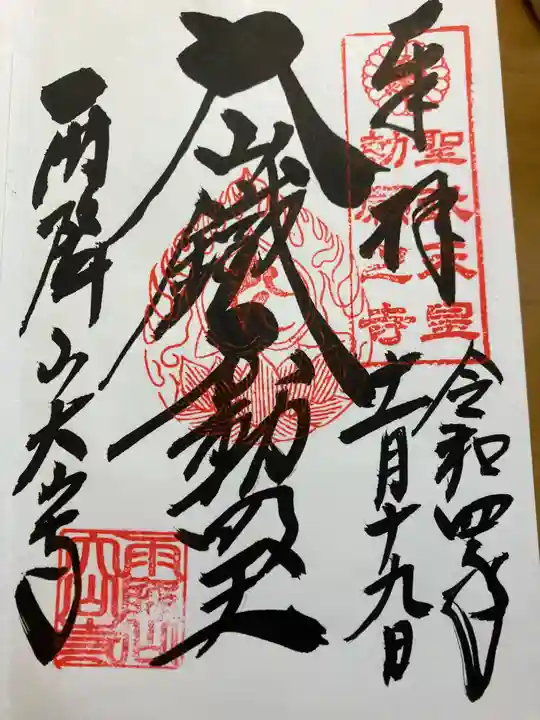 奉拝
聖武天皇
勅願之寺
令和四年
十一月十九日
大山鐵不動明王
雨降山大山寺
雨降山
大山寺